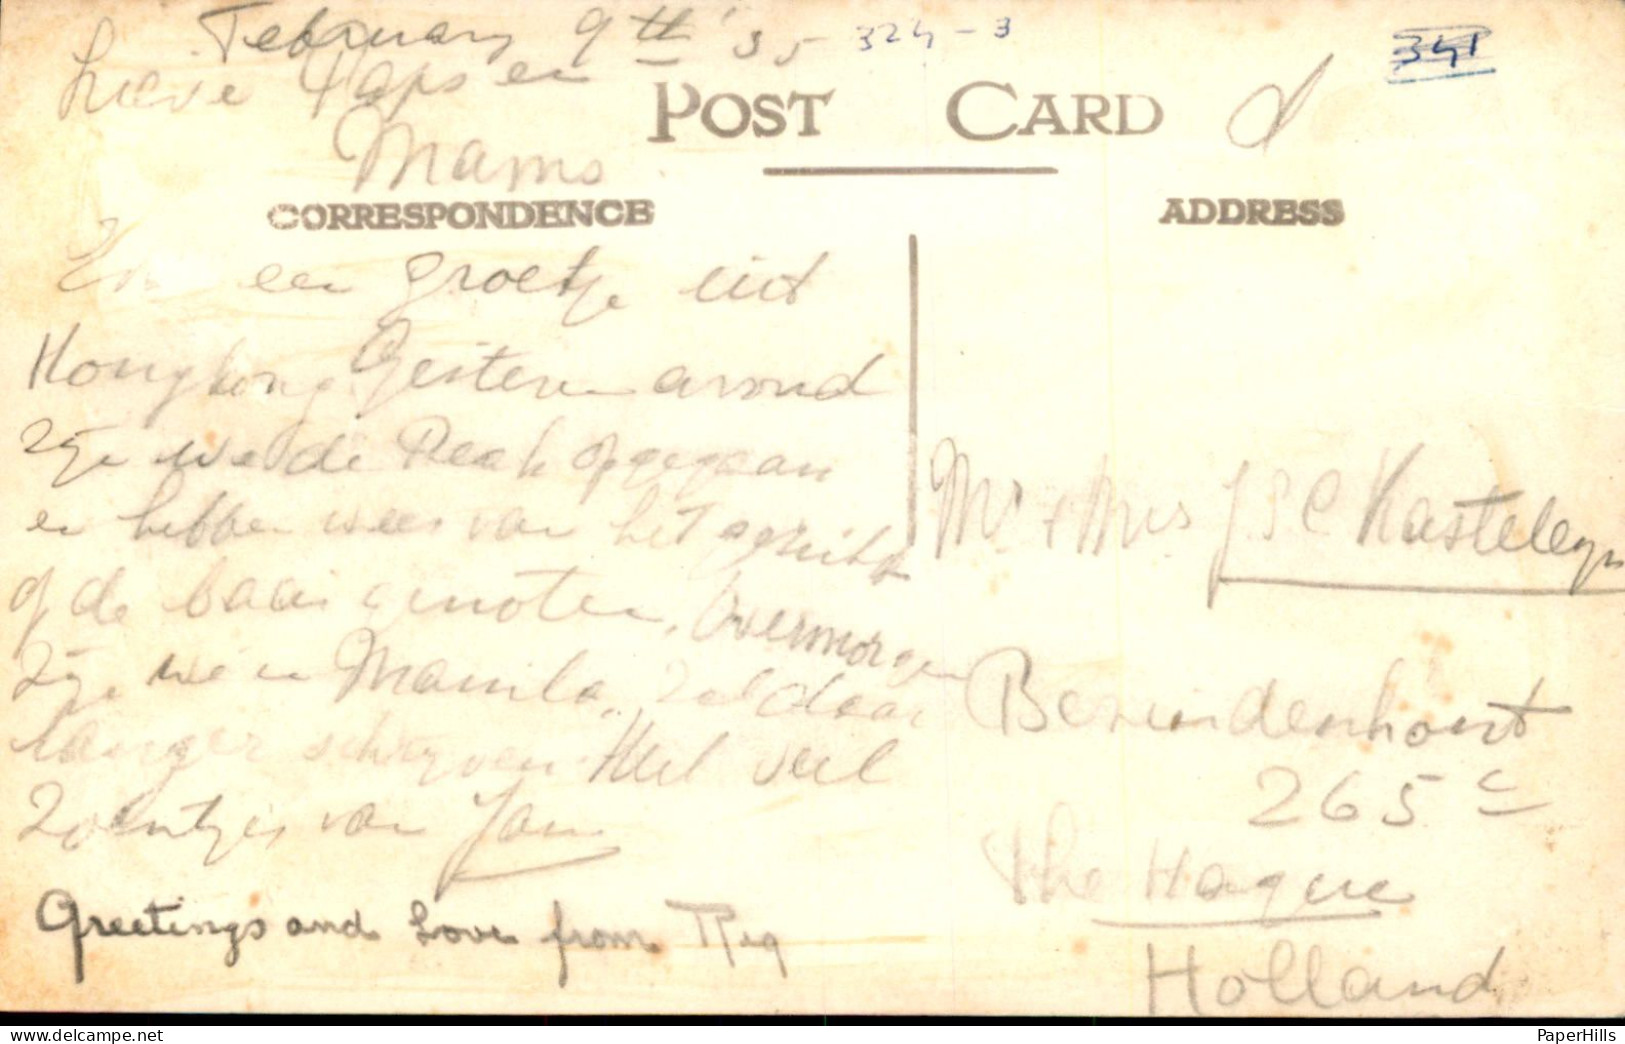 February 9th '35
324-3
341
Lieve Paps en
Mams
POST CARD
CORRESPONDENCE
ADDRESS
een groetje uit
Hongkong. Gisteren avond
zijn we de Peak opgegaan
en hebben wees van het gezicht
op de baai genoten. Overmorgen
zijn we in Manila. Zal daar
langer schrijven. Heel veel
Zoentjes van Jan
Greetings and Love from Reg
Mr & Mrs J.S.C Kasteleyn
Bezuidenhout
265 c
The Hague
Holland
PaperHills